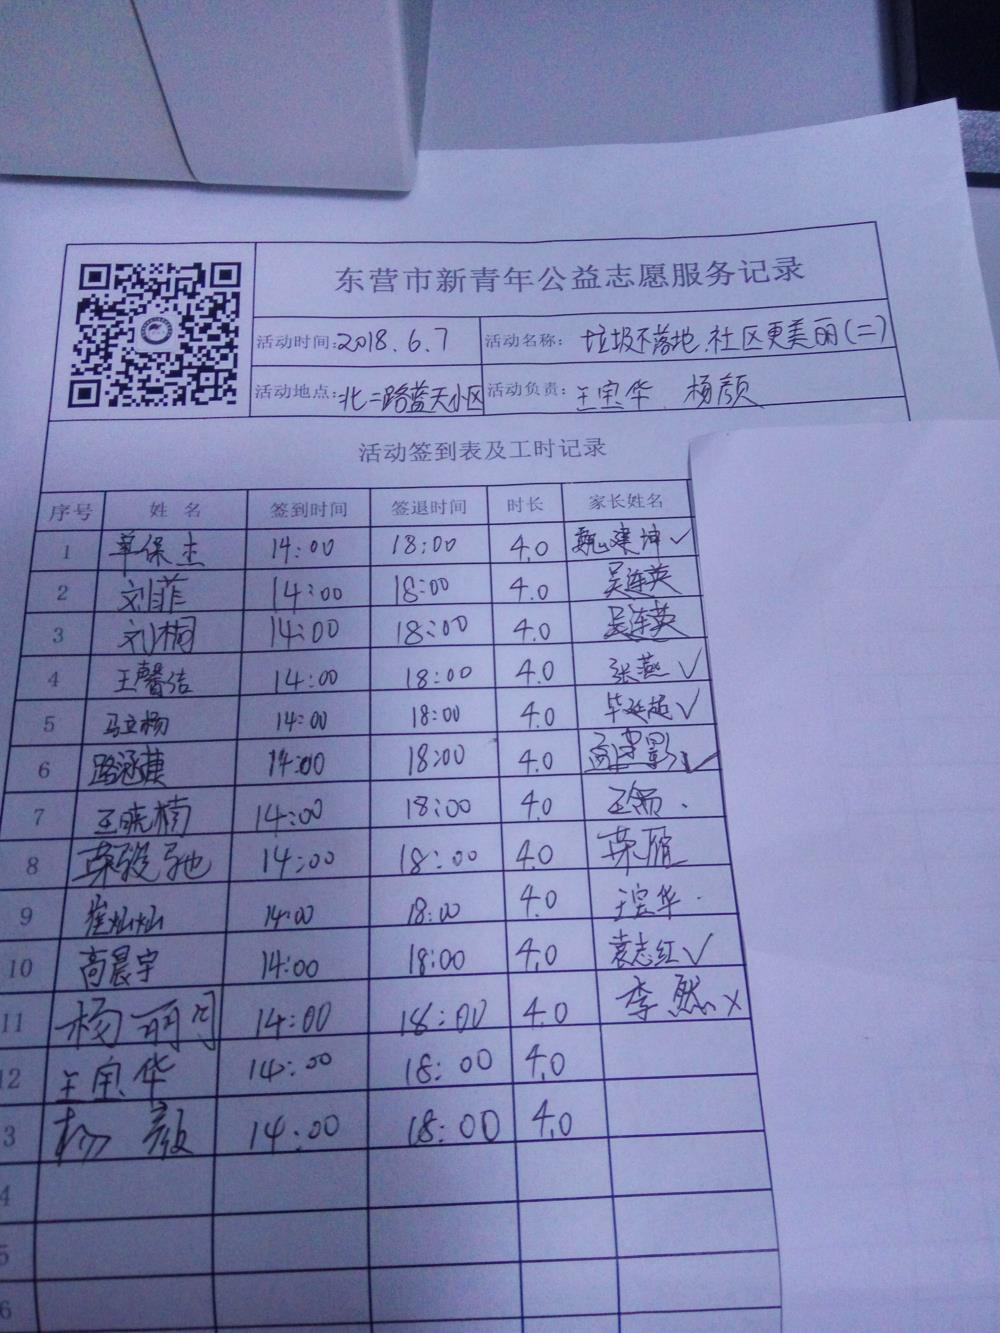 东营市新青年公益志愿服务记录
活动时间:2018.6.7 活动名称: 垃圾不落地.社区更美丽(二)
活动地点:北二路蓝天小区 活动负责: 王宝华 杨颜
活动签到表及工时记录
序号 姓 名 签到时间 签退时间 时长 家长姓名
1 单保杰 14:00 18:00 4.0 魏建坤✓
2 刘菲 14:00 18:00 4.0 吴连英
3 刘桐 14:00 18:00 4.0 吴连英
4 王馨洁 14:00 18:00 4.0 张燕✓
5 马立杨 14:00 18:00 4.0 毕延超✓
6 路涵萁 14:00 18:00 4.0
7 王晓楠 14:00 18:00 4.0
8 荣骏驰 14:00 18:00 4.0 荣雁
9 崔灿灿 14:00 18:00 4.0 王宝华
10 高晨宇 14:00 18:00 4.0 袁志红✓
11 杨丽 14:00 18:00 4.0 李然x
12 王宝华 14:00 18:00 4.0
3 杨颜 14:00 18:00 4.0
4
5
6